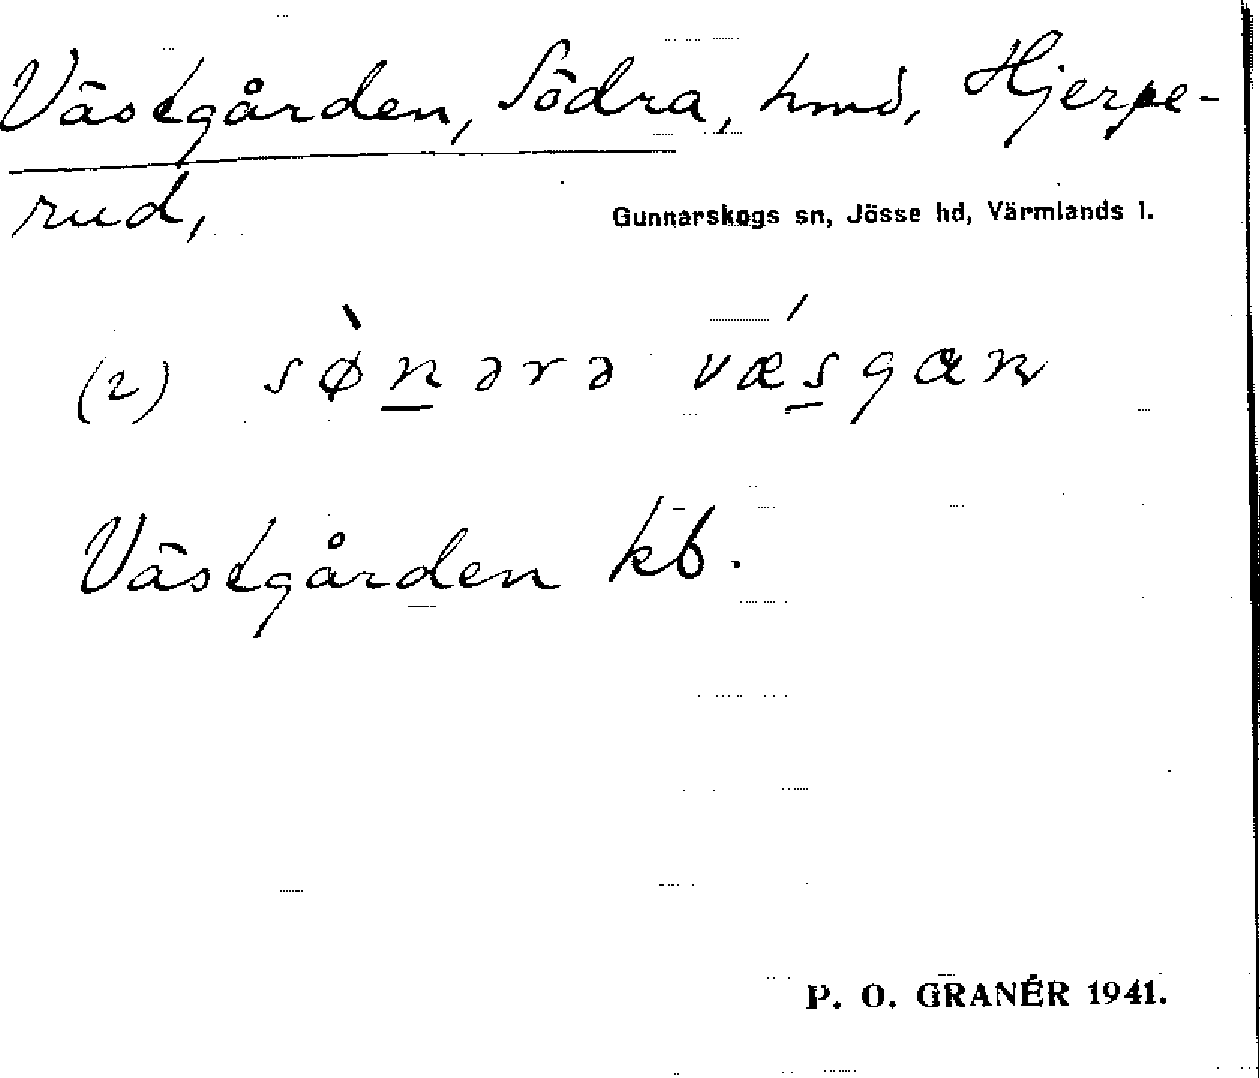 Västgården, Södra, hmd, Hjerpe-
rud,
Gunnarskogs sn, Jösse hd, Värmlands l.
(2) sø̀n̲ərə vǽs̲gaɳ
Västgården kb.
P. O. GRANÉR 1941.